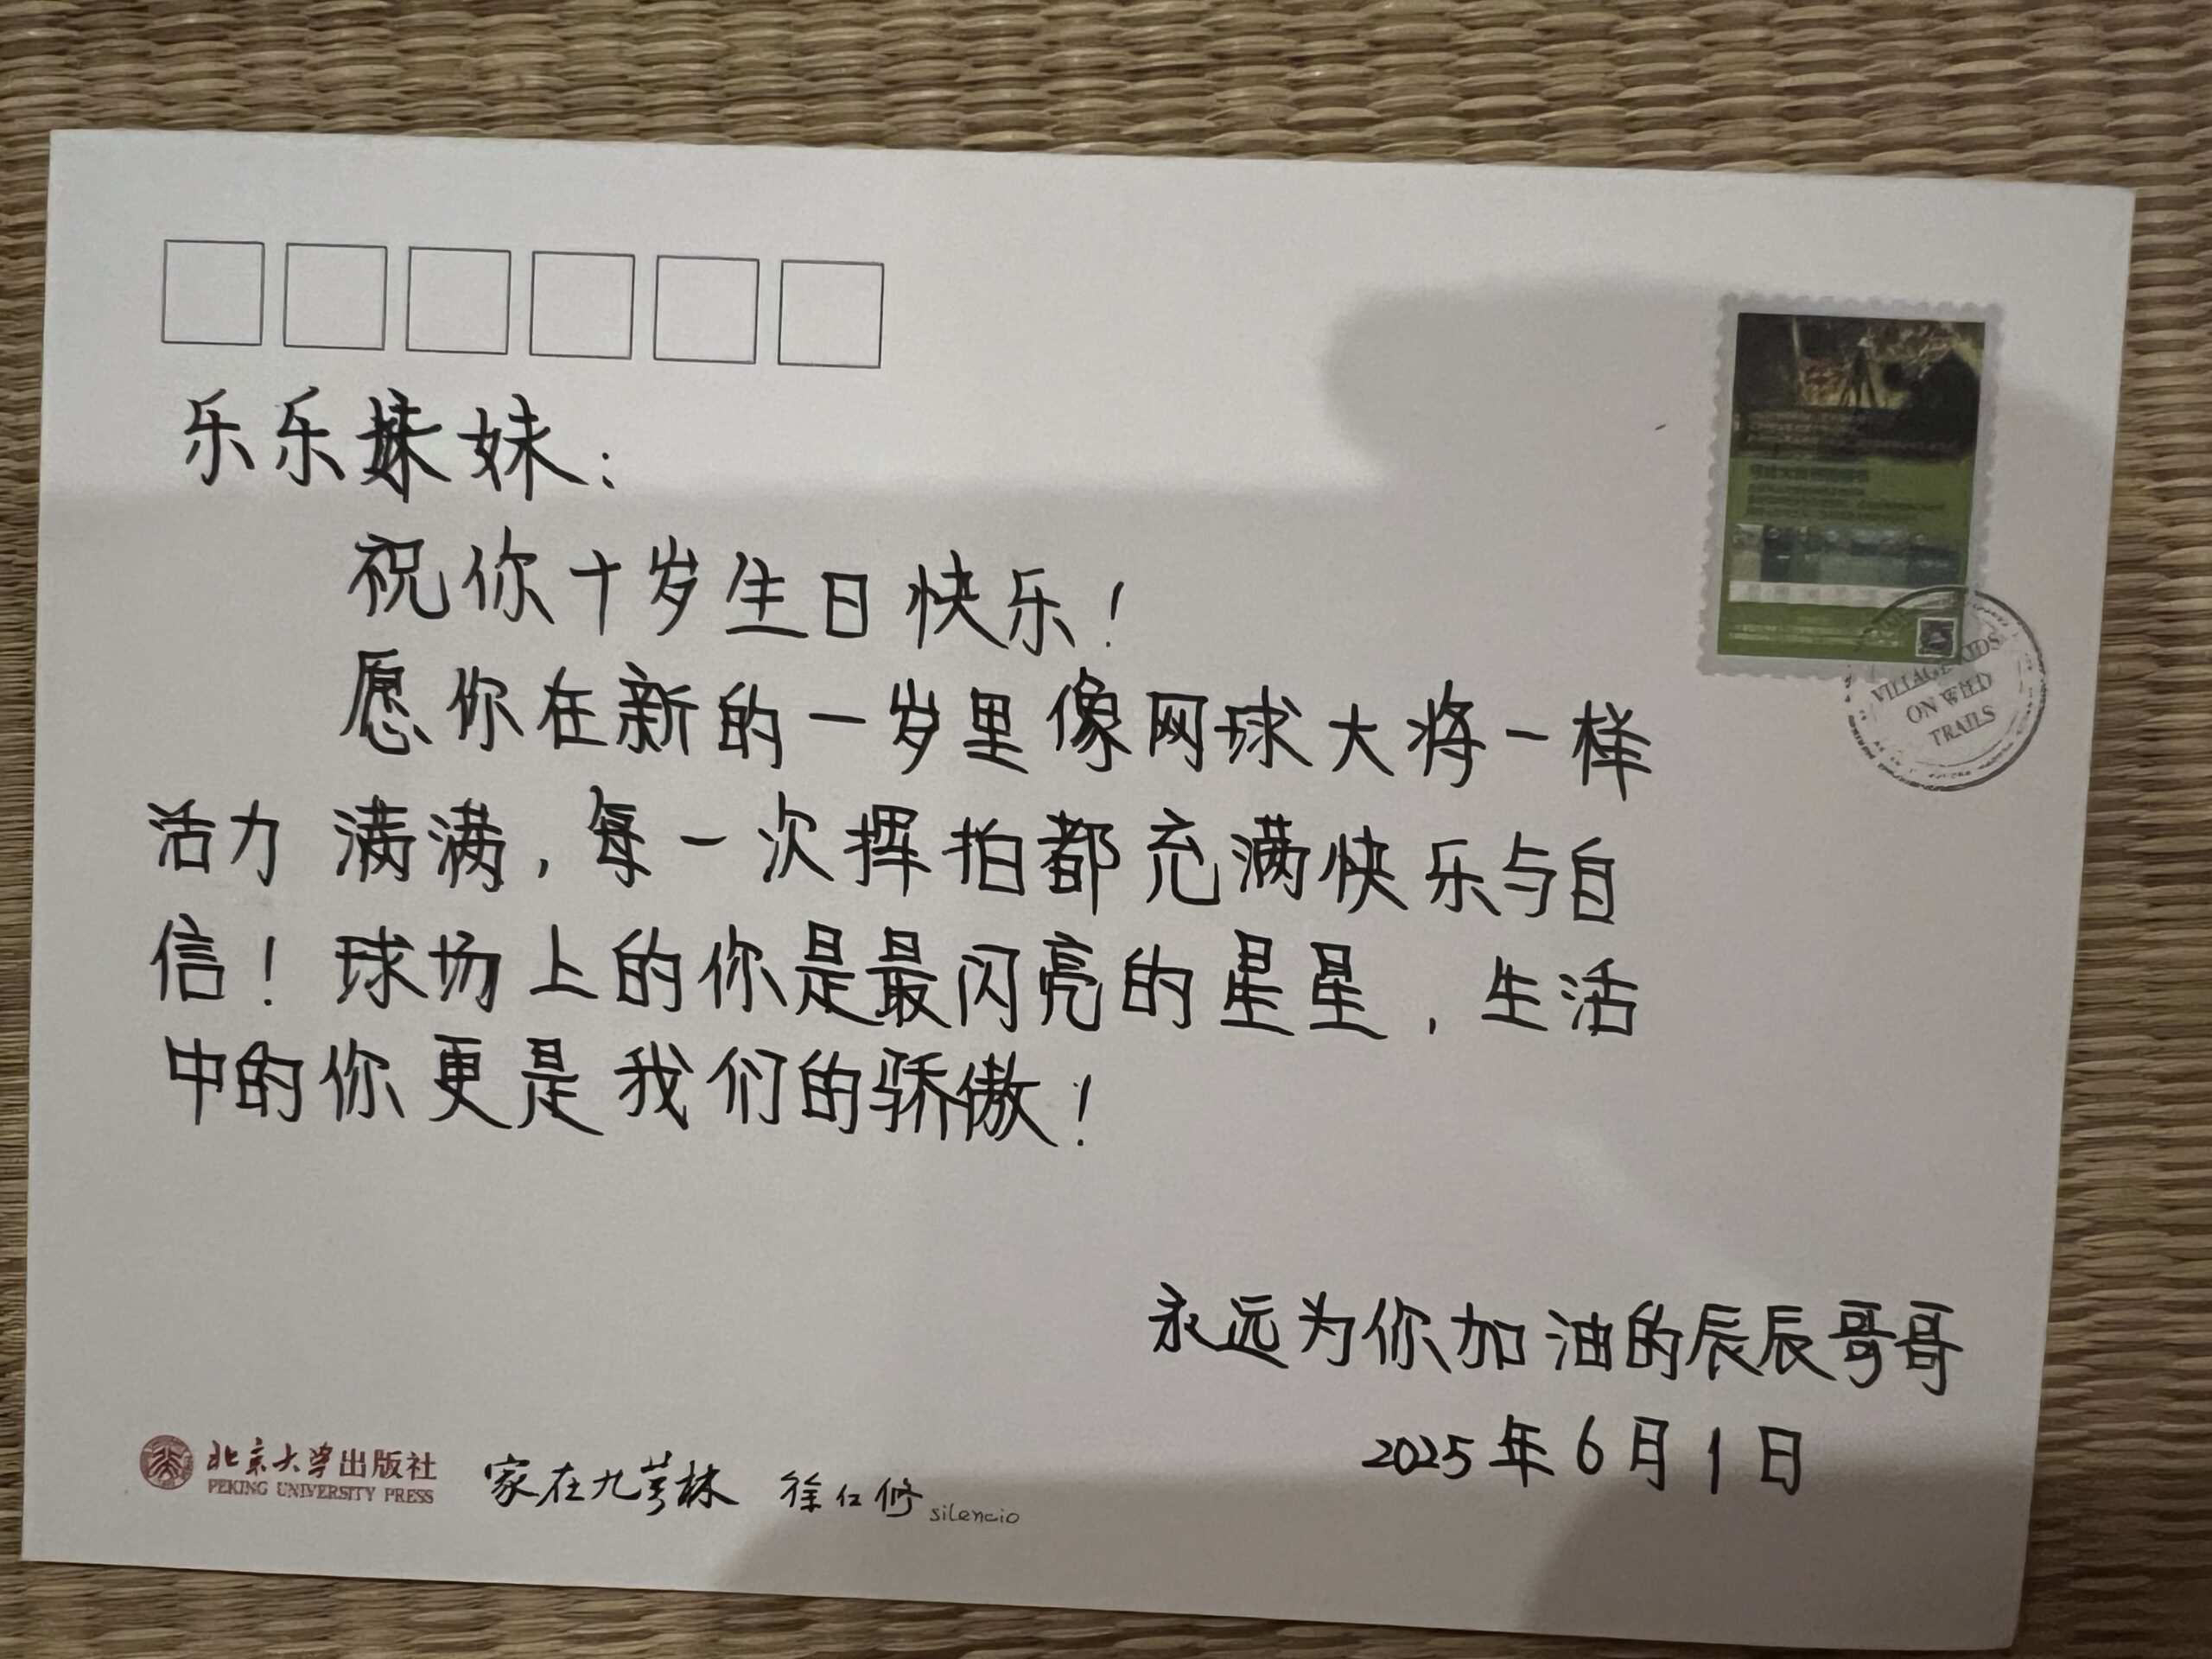 乐乐妹妹：
祝你十岁生日快乐！
愿你在新的一岁里像网球大将一样
活力满满，每一次挥拍都充满快乐与自
信！球场上的你是最闪亮的星星，生活
中的你更是我们的骄傲！
VILLAGE KIDS
ON WILD
TRAILS
永远为你加油的辰辰哥哥
2025年6月1日
北京大学出版社
PEKING UNIVERSITY PRESS
家在九芎林 徐仁修 silencio